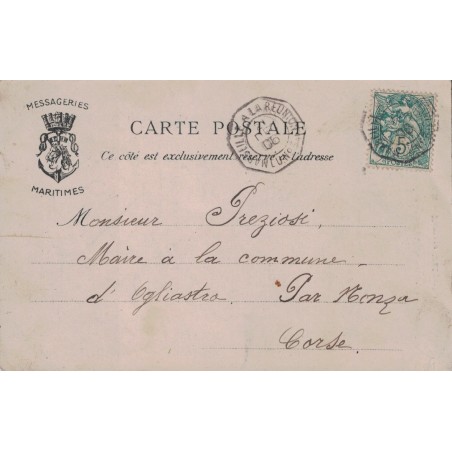 MESSAGERIES
MARITIMES
CARTE POSTALE
Ce côté est exclusivement réservé à l'adresse
LA RÉUNION
5
Monsieur Preziosi,
Maire à la commune
d'Ogliastro. Par Nonza
Corse.